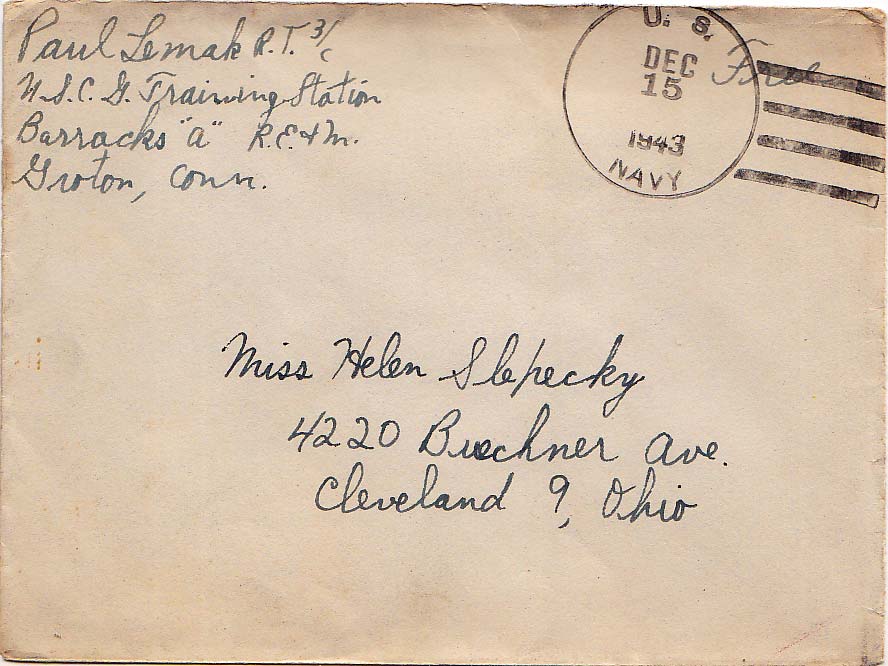 Paul Lemak R.T. 3/c
U.S.C.G. Training Station
Barracks "A" R.E. & M.
Groton, Conn.
U. S.
DEC
15
1943
NAVY
Free
Miss Helen Slepecky
4220 Buechner Ave.
Cleveland 9, Ohio